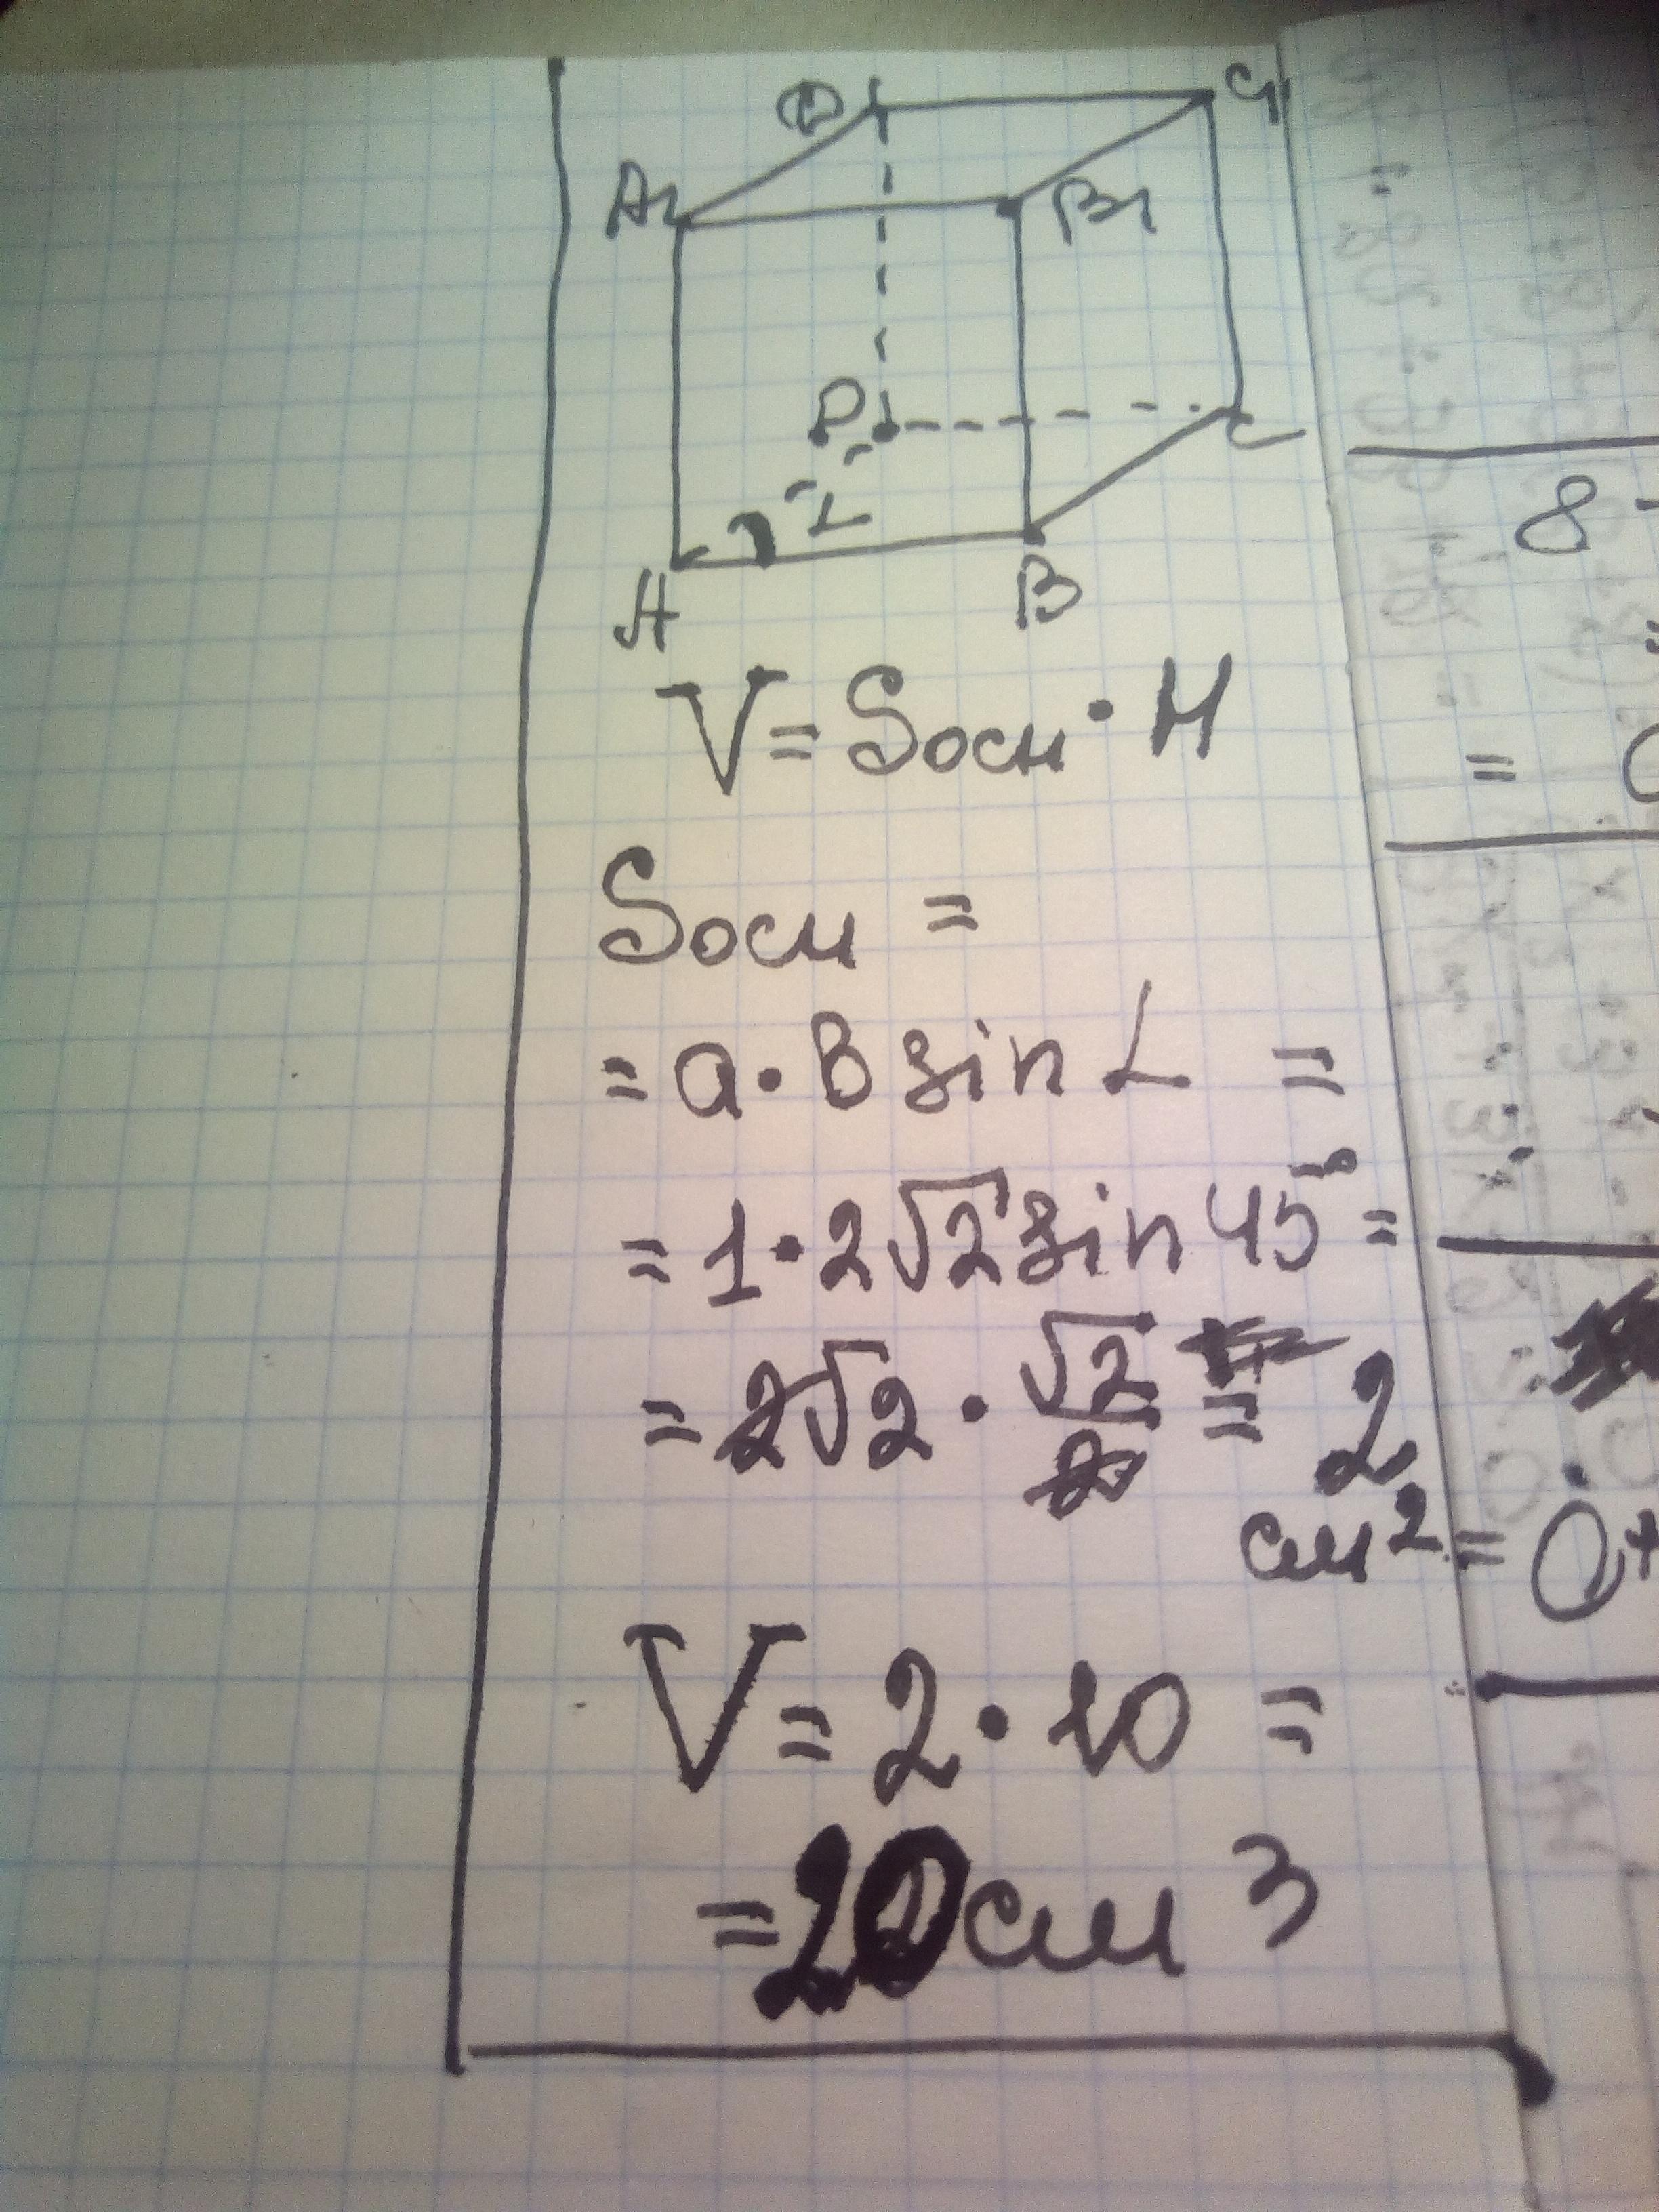 D C1
A1 B1
D C
α
A B
V = Sосн · H
Sосн =
= a · b sin α =
= 1 · 2√2 sin 45° =
= 2√2 · √2/2 = 2
см²
V = 2 · 10 =
= 20 см³
8 -
=
= 0+